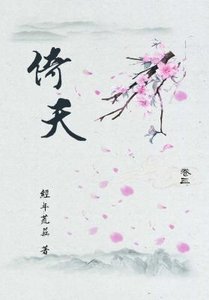 倚天
卷三
經年荒蕪 著